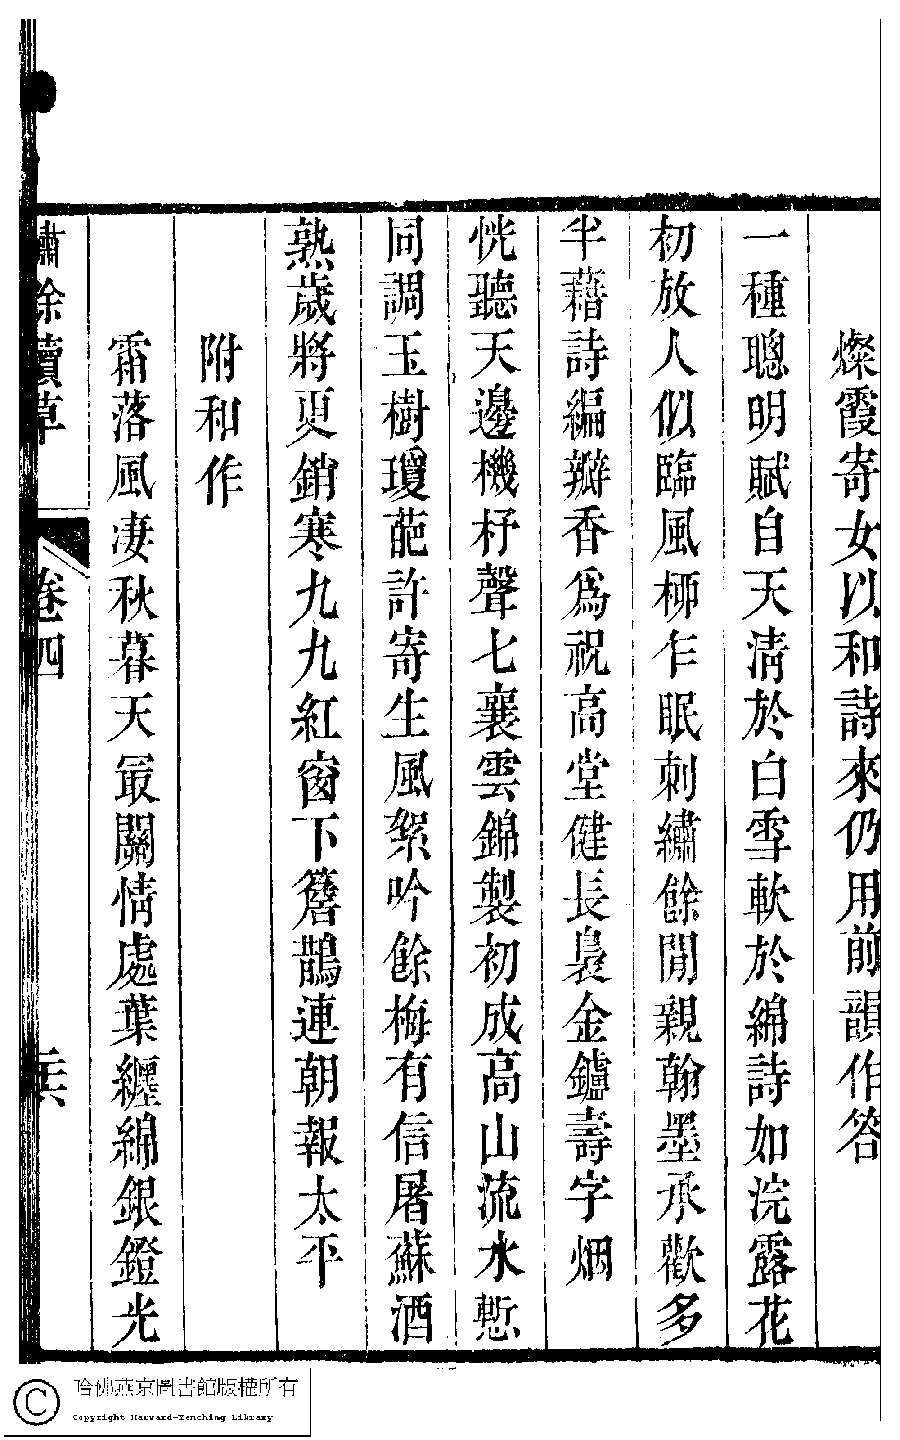 燦霞寄女以和詩來仍用前韻作答
一種聰明賦自天清於白雪軟於綿詩如浣露花
初放人似臨風栁乍眠刺繡餘閒親翰墨承歡多
半藉詩編瓣香爲祝高堂健長裊金鑪壽字烟
恍聽天邊機杼聲七襄雲錦製初成高山流水慙
同調玉樹瓊葩許寄生風絮吟餘梅有信屠蘇酒
熟歲將更銷寒九九紅窗下簷鵲連朝報太平
附和作
霜落風凄秋暮天冣關情處葉纏綿銀鐙光
繡餘續草
卷四
哈佛燕京圖書館版權所有
Copyright Harvard-Yenching Library